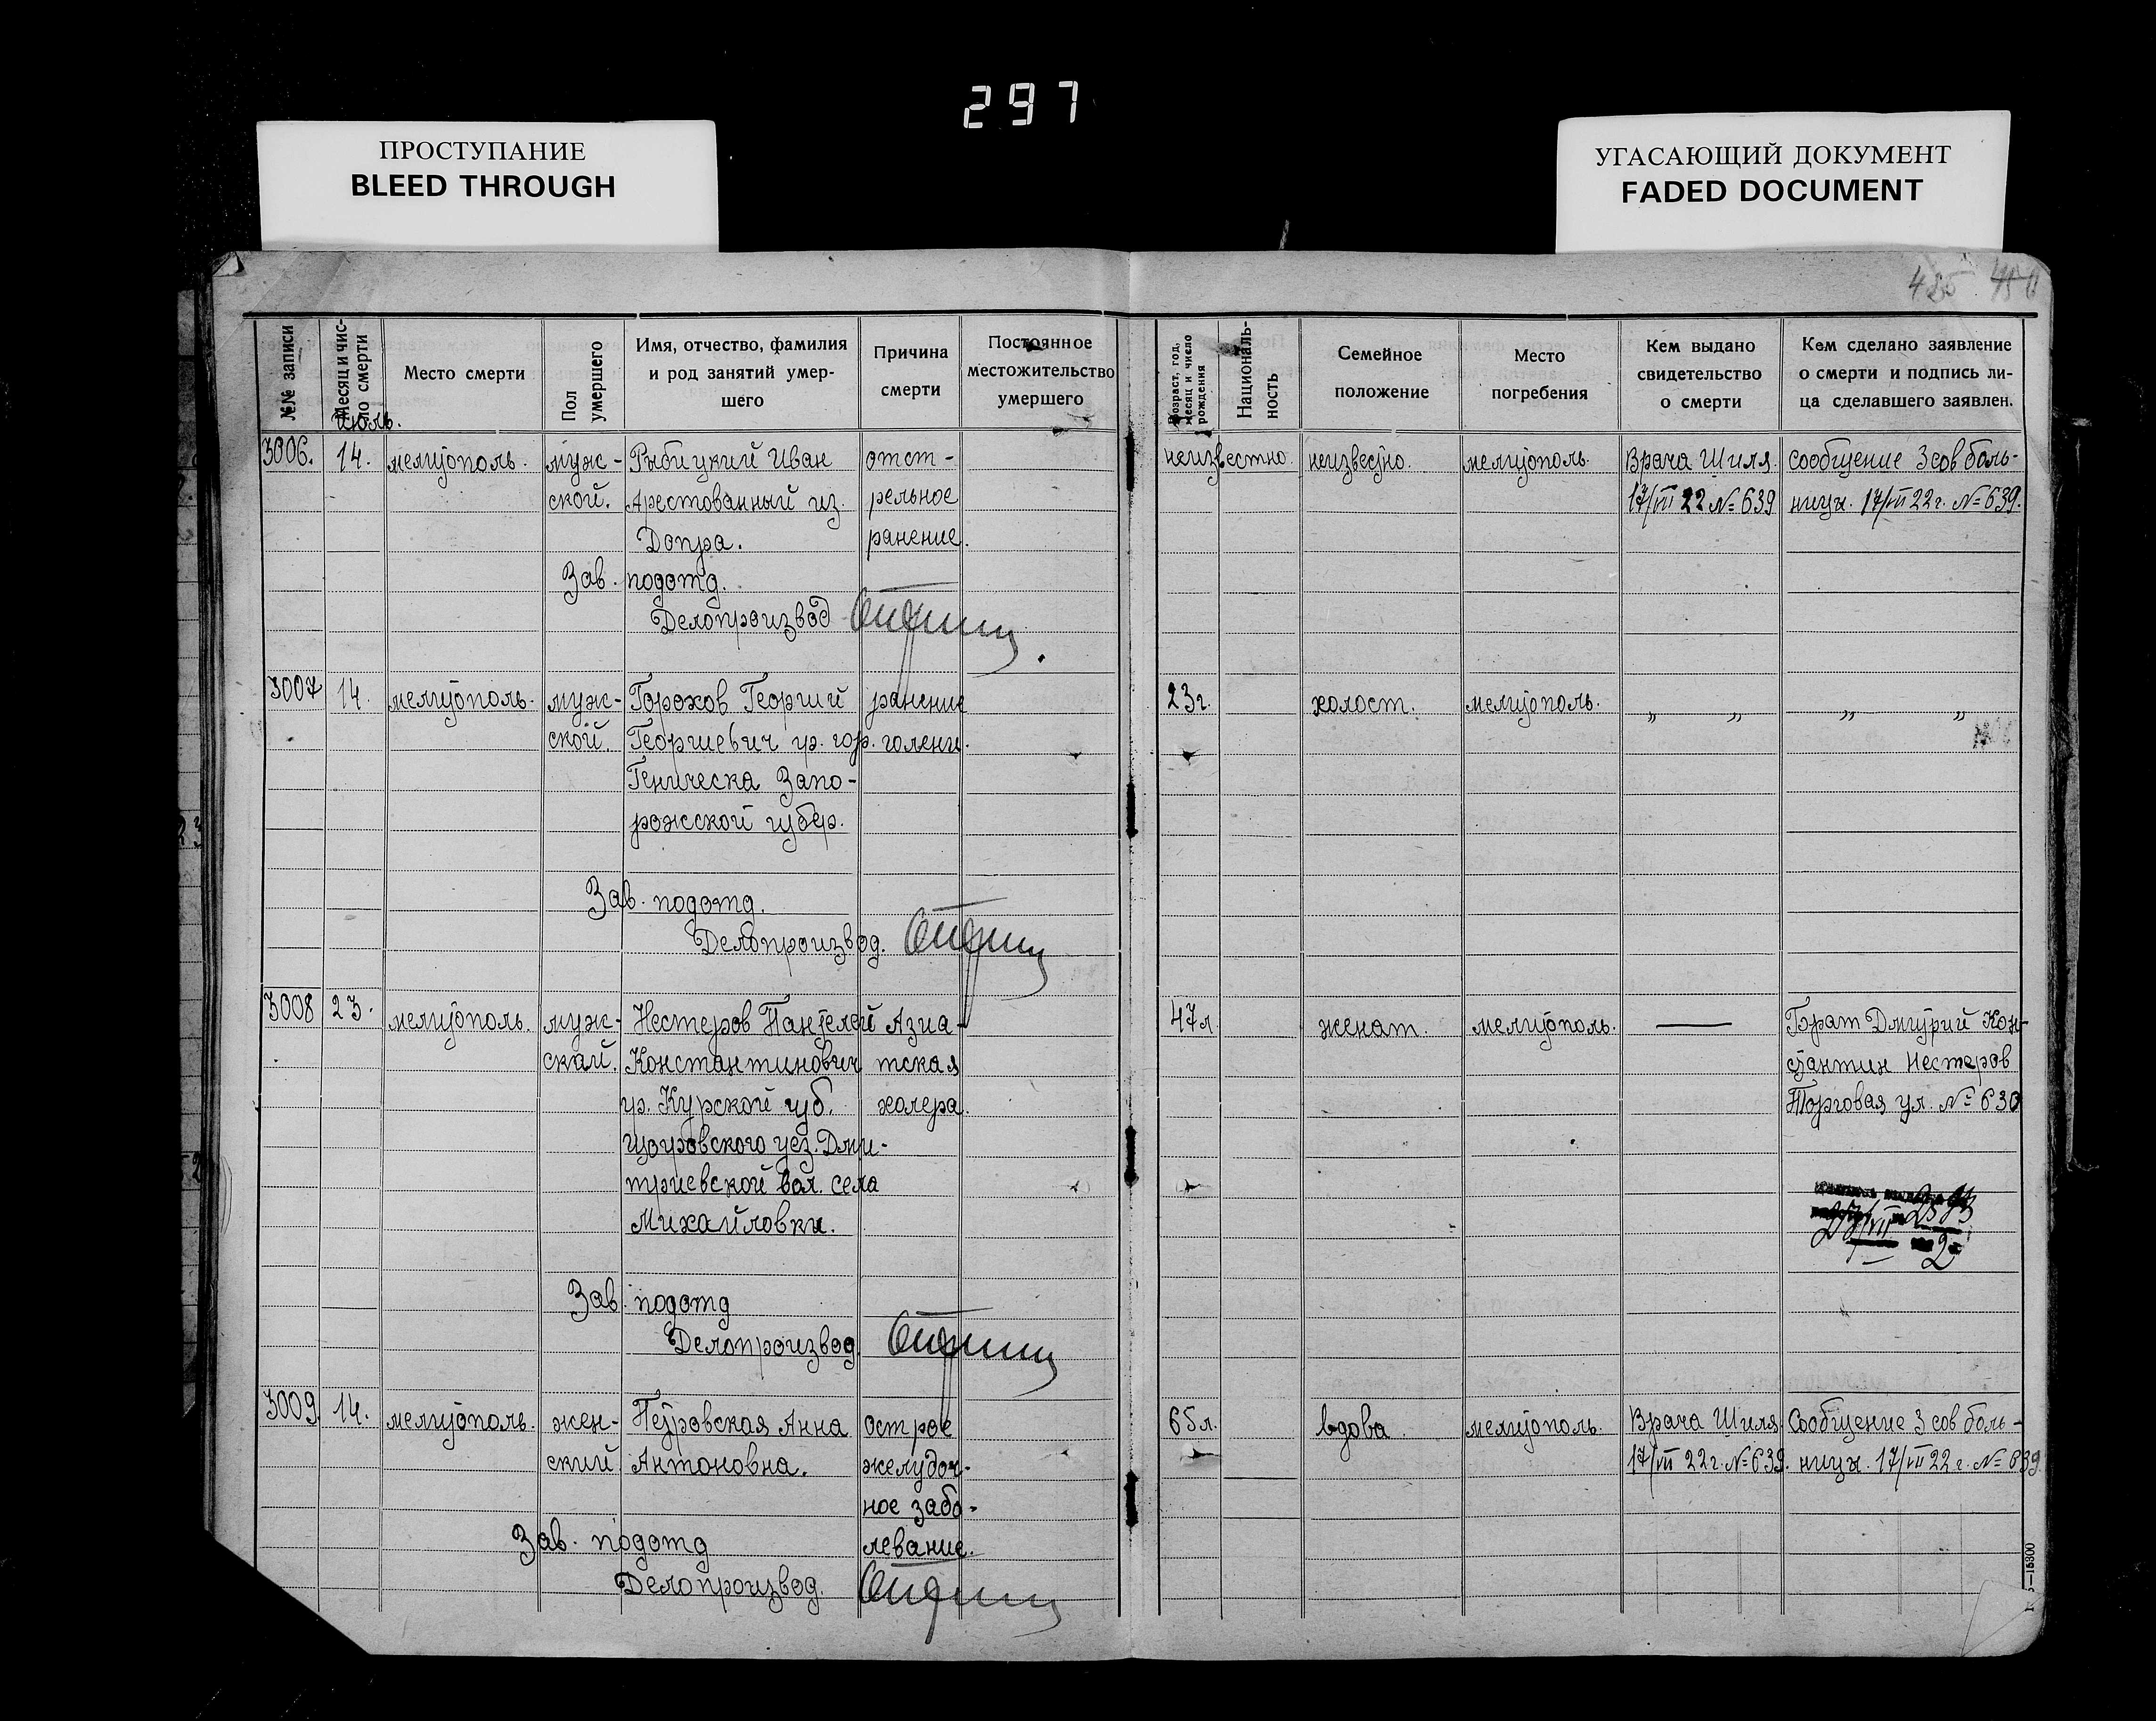 297
ПРОСТУПАНИЕ
BLEED THROUGH
УГАСАЮЩИЙ ДОКУМЕНТ
FADED DOCUMENT
485
№№ записи
Месяц и число смерти
Место смерти
Пол умершего
Имя, отчество, фамилия
и род занятий умер-
шего
Причина
смерти
Постоянное
местожительство
умершего
Возраст, год, месяц и число рождения
Националь-
ность
Семейное
положение
Место
погребения
Кем выдано
свидетельство
о смерти
Кем сделано заявление
о смерти и подпись ли-
ца сделавшего заявлен.
Июль.
3006. 14. мелитополь. муж- Рыбицкий Иван отст- неизвестно. неизвестно. мелитополь. Врача Шиля. сообщение 3 сов боль-
ской. Арестованный из. рельное 17/VII 22 № 639 ницы. 17/VII 22 г. № 639.
Допра. ранение.
Зав. подотд.
Делопроизвод
3007 14. мелитополь. муж- Горохов Георгий ранение 23 г. холост. мелитополь. „ „ „ „
ской. Георгиевич ур. гор. голени.
Геническа Запо-
рожской губер.
Зав. подотд.
Делопроизвод.
3008 23. мелитополь. муж- Нестеров Пантелей Азиа- 47 л женат. мелитополь. — Брат Дмитрий Кон-
ской. Константинович тская стантин Нестеров
ур. Курской губ. холера. Торговая ул. № 630
Щигровского уез. Дми-
триевской вол. села
Михайловки.
Зав. подотд
Делопроизвод
3009 14. мелитополь. жен- Петровская Анна острое 65 л. вдова. мелитополь. Врача Шиля Сообщение 3 сов боль-
ский Антоновна. желудоч- 17/VII 22 г. № 639. ницы. 17/VII 22 г. № 639.
ное забо-
Зав. подотд левание.
Делопроизвод.